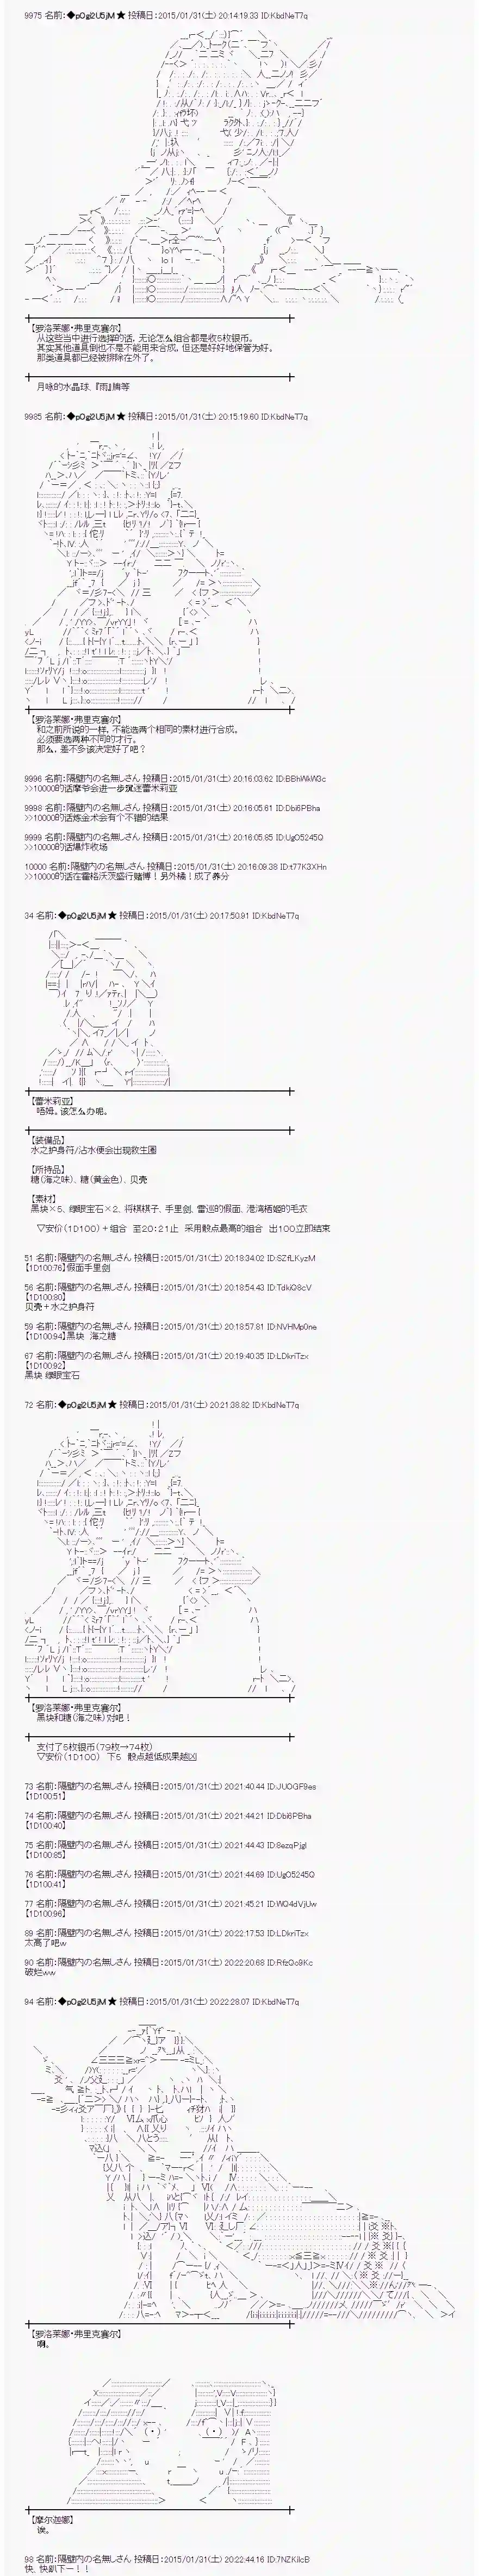 9975 名前：◆pOgi2U5jM ★ 投稿日：2015/01/31(土) 20:14:19.33 ID:KbdNeT7q
【罗洛莱娜·弗里克赛尔】
从这些当中进行选择的话，无论怎么组合都是收5枚银币。
其实其他道具倒也不是不能用来合成，但还是好好地保管为好。
那类道具都已经被排除在外了。
月咏的水晶球、『雨』牌等
9985 名前：◆pOgi2U5jM ★ 投稿日：2015/01/31(土) 20:15:19.60 ID:KbdNeT7q
【罗洛莱娜·弗里克赛尔】
和之前所说的一样，不能选两个相同的素材进行合成。
必须要选两种不同的才行。
那么，差不多该决定好了吧？
9996 名前：隔壁内の名無しさん 投稿日：2015/01/31(土) 20:16:03.62 ID:BBhWkW3c
>>10000的话摩爷会进一步筑迷蕾米莉亚
9998 名前：隔壁内の名無しさん 投稿日：2015/01/31(土) 20:16:05.61 ID:Dbi6PBha
>>10000的话炼金术会有个不错的结果
9999 名前：隔壁内の名無しさん 投稿日：2015/01/31(土) 20:16:05.85 ID:UgO5245Q
>>10000的话爆炸收场
10000 名前：隔壁内の名無しさん 投稿日：2015/01/31(土) 20:16:09.38 ID:t77K3XHn
>>10000的话在霍格沃茨盛行赌博！另外橘！成了养分
34 名前：◆pOgi2U5jM ★ 投稿日：2015/01/31(土) 20:17:50.91 ID:KbdNeT7q
【蕾米莉亚】
唔姆。该怎么办呢。
【装备品】
水之护身符/沾水便会出现救生圈
【所持品】
糖(海之味)、糖(黄金色)、贝壳
【素材】
黑块×5、绿眼宝石×2、将棋棋子、手里剑、雷巡的假面、港湾栖姬的毛衣
▽安价(1D100)＋组合 至20：21止 采用骰点最高的组合 出100立即结束
51 名前：隔壁内の名無しさん 投稿日：2015/01/31(土) 20:18:34.02 ID:SZfLKyzM
【1D100:76】假面手里剑
56 名前：隔壁内の名無しさん 投稿日：2015/01/31(土) 20:18:54.43 ID:TdkiQ8cV
【1D100:80】
贝壳＋水之护身符
59 名前：隔壁内の名無しさん 投稿日：2015/01/31(土) 20:18:57.81 ID:NVHMp0ne
【1D100:94】黑块 海之糖
67 名前：隔壁内の名無しさん 投稿日：2015/01/31(土) 20:19:40.35 ID:LDkriTzx
【1D100:92】
黑块 绿眼宝石
72 名前：◆pOgi2U5jM ★ 投稿日：2015/01/31(土) 20:21:38.82 ID:KbdNeT7q
【罗洛莱娜·弗里克赛尔】
黑块和糖(海之味)对吧！
支付了5枚银币(79枚→74枚)
▽安价(1D100) 下5 骰点越低成果越凶
73 名前：隔壁内の名無しさん 投稿日：2015/01/31(土) 20:21:40.44 ID:JUOGF9es
【1D100:51】
74 名前：隔壁内の名無しさん 投稿日：2015/01/31(土) 20:21:44.21 ID:Dbi6PBha
【1D100:40】
75 名前：隔壁内の名無しさん 投稿日：2015/01/31(土) 20:21:44.43 ID:8ezqPjgl
【1D100:85】
76 名前：隔壁内の名無しさん 投稿日：2015/01/31(土) 20:21:44.69 ID:UgO5245Q
【1D100:41】
77 名前：隔壁内の名無しさん 投稿日：2015/01/31(土) 20:21:45.21 ID:WQ4dVjUw
【1D100:96】
89 名前：隔壁内の名無しさん 投稿日：2015/01/31(土) 20:22:17.53 ID:LDkriTzx
太高了吧w
90 名前：隔壁内の名無しさん 投稿日：2015/01/31(土) 20:22:20.68 ID:RfzOo9Kc
破烂ww
94 名前：◆pOgi2U5jM ★ 投稿日：2015/01/31(土) 20:22:28.07 ID:KbdNeT7q
【罗洛莱娜·弗里克赛尔】
啊。
【摩尔迦娜】
诶。
98 名前：隔壁内の名無しさん 投稿日：2015/01/31(土) 20:22:44.16 ID:7NZKiIcB
快、快趴下ー！！